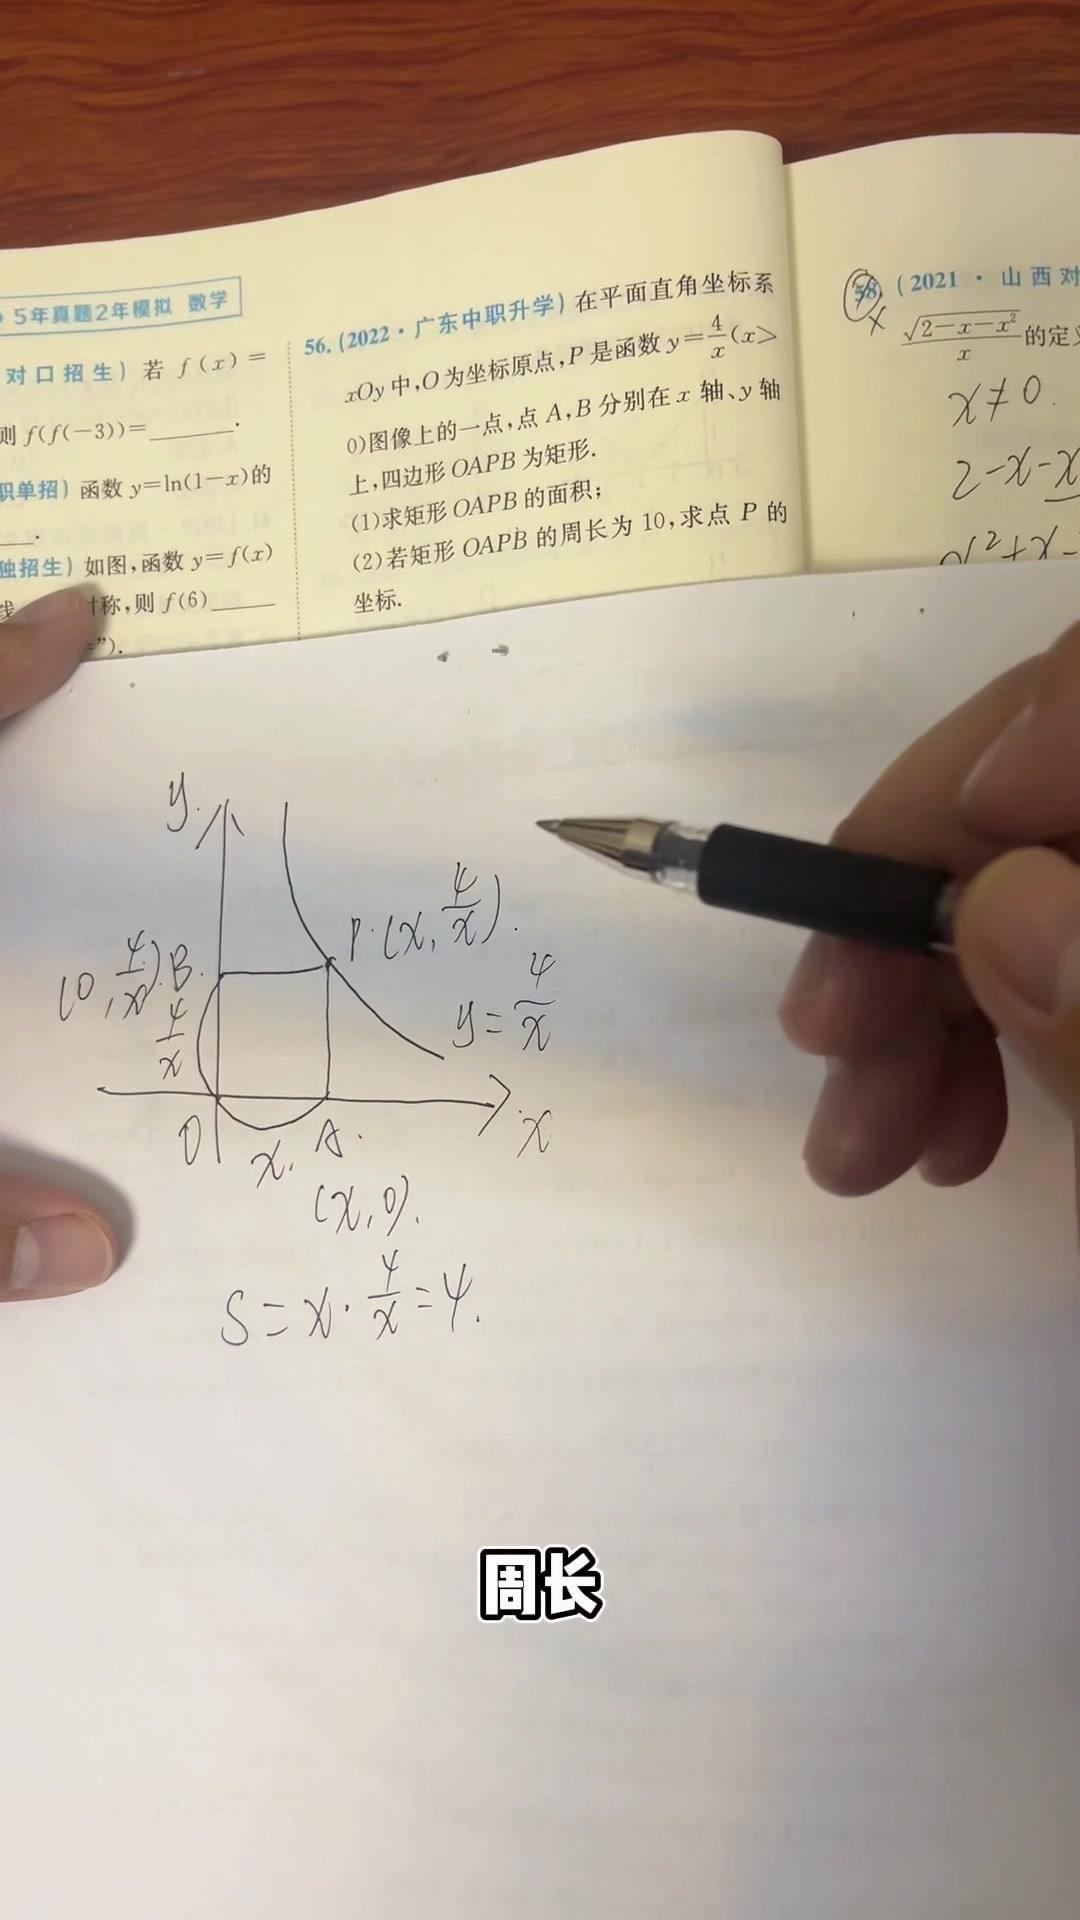 5年真题2年模拟 数学
对口招生) 若 f(x)=
则 f(f(-3))=______.
职单招) 函数 y=ln(1-x)的
___.
独招生) 如图,函数 y=f(x)
对称,则 f(6)____
=").
56.(2022·广东中职升学) 在平面直角坐标系
xOy 中,O 为坐标原点,P 是函数 y=4/x(x>
0)图像上的一点,点 A,B 分别在 x 轴、y 轴
上,四边形 OAPB 为矩形.
(1)求矩形 OAPB 的面积;
(2)若矩形 OAPB 的周长为 10,求点 P 的
坐标.
58. (2021·山西对
√(2-x-x²)/x 的定义
x≠0.
2-x-x
y.
P.(x, 4/x).
(0, 4/x) B.
4/x
y=4/x
O
x. A.
x
(x,0).
S=x·4/x=4.
周长